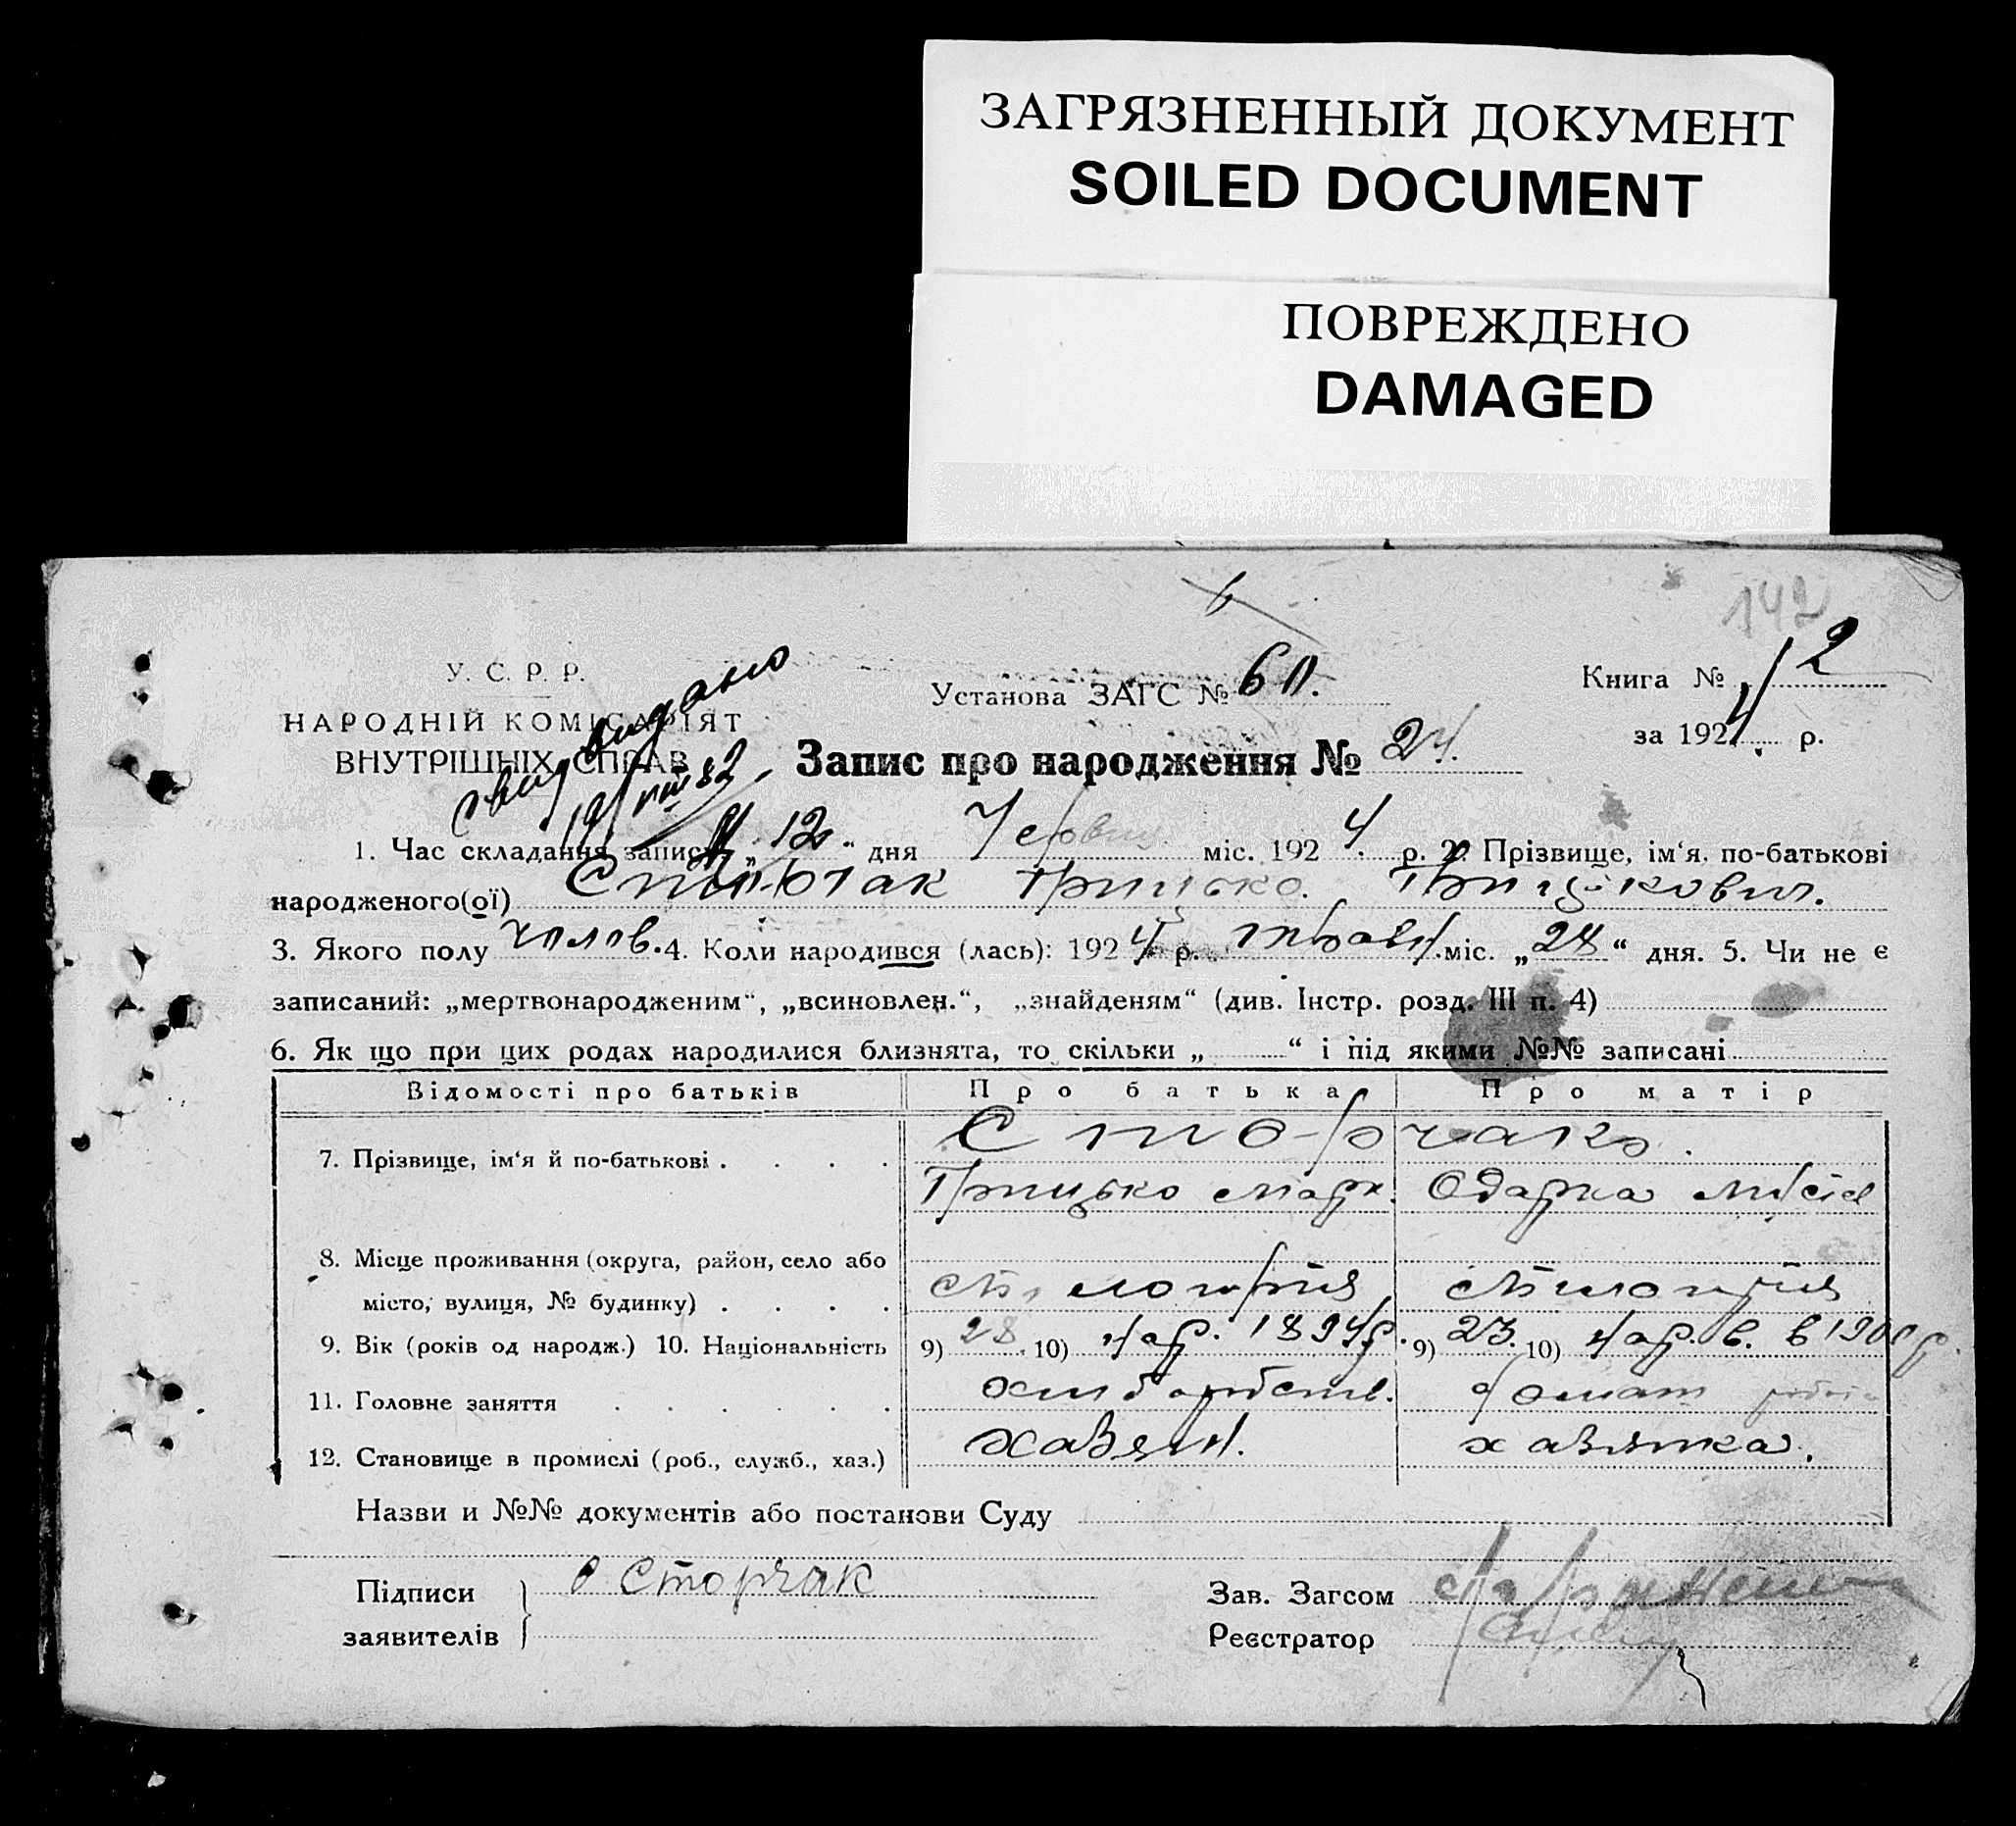 ЗАГРЯЗНЕННЫЙ ДОКУМЕНТ
SOILED DOCUMENT
ПОВРЕЖДЕНО
DAMAGED
142
У. С. Р. Р.
НАРОДНІЙ КОМІСАРІЯТ
ВНУТРІШНІХ СПРАВ
видано
Установа ЗАГС № 60.
Книга № 1/2
за 1924 р.
Запис про народження № 24.
1. Час складання запису „12“ дня Червня міс. 1924 р. 2. Прізвище, ім‘я, по-батькові
народженого(ої) Сторчак Грицько Грицькович.
3. Якого полу чолов. 4. Коли народився (лась): 1924 р. травн. міс. „28“ дня. 5. Чи не є
записаний: „мертвонародженим“, „всиновлен.“, „знайденям“ (див. Інстр. розд. III п. 4)
6. Як що при цих родах народилися близнята, то скільки „ “ і під якими №№ записані
Відомості про батьків Про батька Про матір
7. Прізвище, ім‘я й по-батькові . . . . Сторчак
Грицько Марк. Одарка
8. Місце проживання (округа, район, село або
місто, вулиця, № будинку) . . . .
9. Вік (років од народж.) 10. Національність 9) 28 10) 1894р. 9) 23 10)
11. Головне заняття . . . . . . хліборобств. домаш
12. Становище в промислі (роб., служб., хаз.) хазяїн. хазяйка.
Назви и №№ документів або постанови Суду
Підписи
заявителів
О Сторчак
Зав. Загсом
Реєстратор